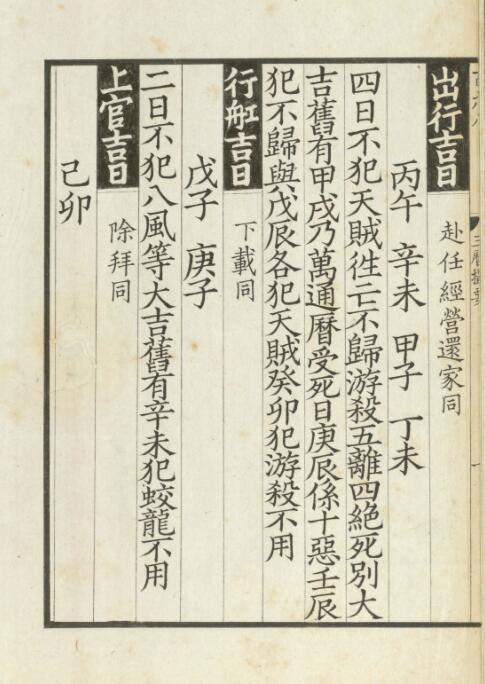 出行吉日 赴任經營還家同
丙午 辛未 甲子 丁未
四日不犯天賊徃亡不歸游殺五離四絶死别大
吉舊有甲戌乃萬通曆受死日庚辰係十惡壬辰
犯不歸與戊辰各犯天賊癸卯犯游殺不用
行舡吉日 下載同
戊子 庚子
二日不犯八風等大吉舊有辛未犯蛟龍不用
上官吉日 除拜同
己卯